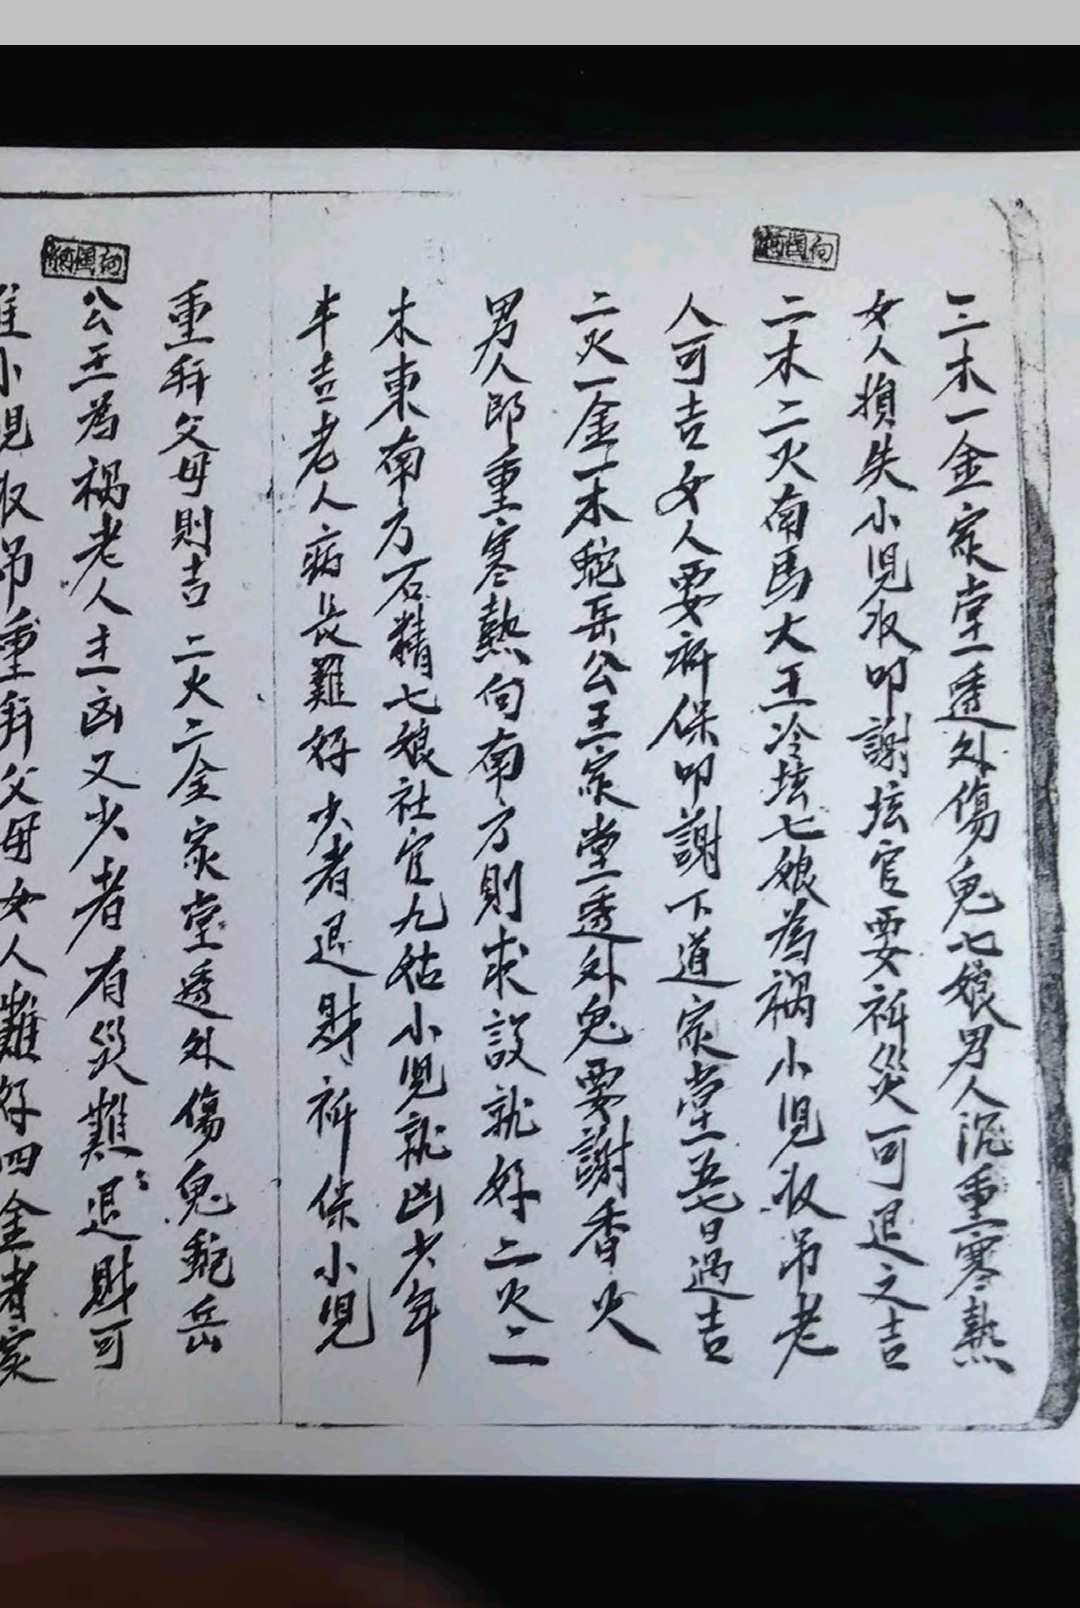 三木一金家堂透外傷鬼七娘男人沉重寒熱
女人損失小児収叩謝坛官要祈災可退之吉
二木二火南馬大王冷坛七娘為禍小児収吊老
人可吉女人要祈保叩謝下道家堂五七日過吉
二火一金一木蛇岳公王家堂透外鬼要謝香火
男人郎重寒熱向南方則求設就好二火二
木東南方石精七娘社官九姑小児就凶少年
半吉老人病長難好少者退財祈保小児
重拜父母則吉二火二金家堂透外傷鬼蛇岳
公王為禍老人主凶又少者有災難退財可
小児収吊重拜父母女人難好四金者家